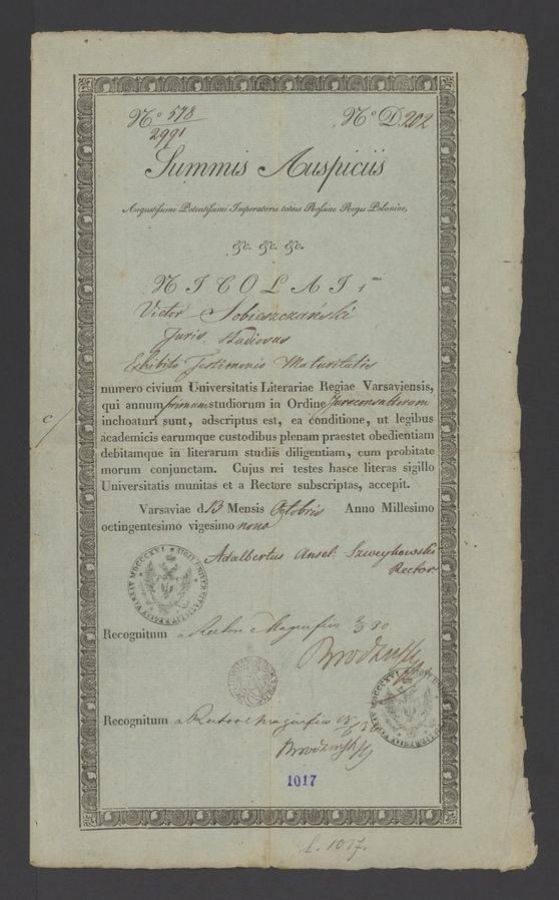 N° 578 N° D202
2991
Summis Auspiciis
Augustissimi Potentissimi Imperatoris totius Rossiae Regis Poloniae,
&c. &c. &c.
NICOLAI I mi
Victor Sobieszczański
Juris studiosus
Exhibito Testimonio Maturitatis
numero civium Universitatis Literariae Regiae Varsaviensis,
qui annum primum studiorum in Ordine Jureconsultorum
inchoaturi sunt, adscriptus est, ea conditione, ut legibus
academicis earumque custodibus plenam praestet obedientiam
debitamque in literarum studiis diligentiam, cum probitate
morum conjunctam. Cujus rei testes hasce literas sigillo
Universitatis munitas et a Rectore subscriptas, accepit.
Varsaviae d. 13 Mensis Octobris Anno Millesimo
octingentesimo vigesimo nono
Adalbertus Ansel. Szweykowski
Rector
Recognitum a Rectore Magnifico
Brodziński
Recognitum a Rectore Magnifico
Brodziński
1017
1017.